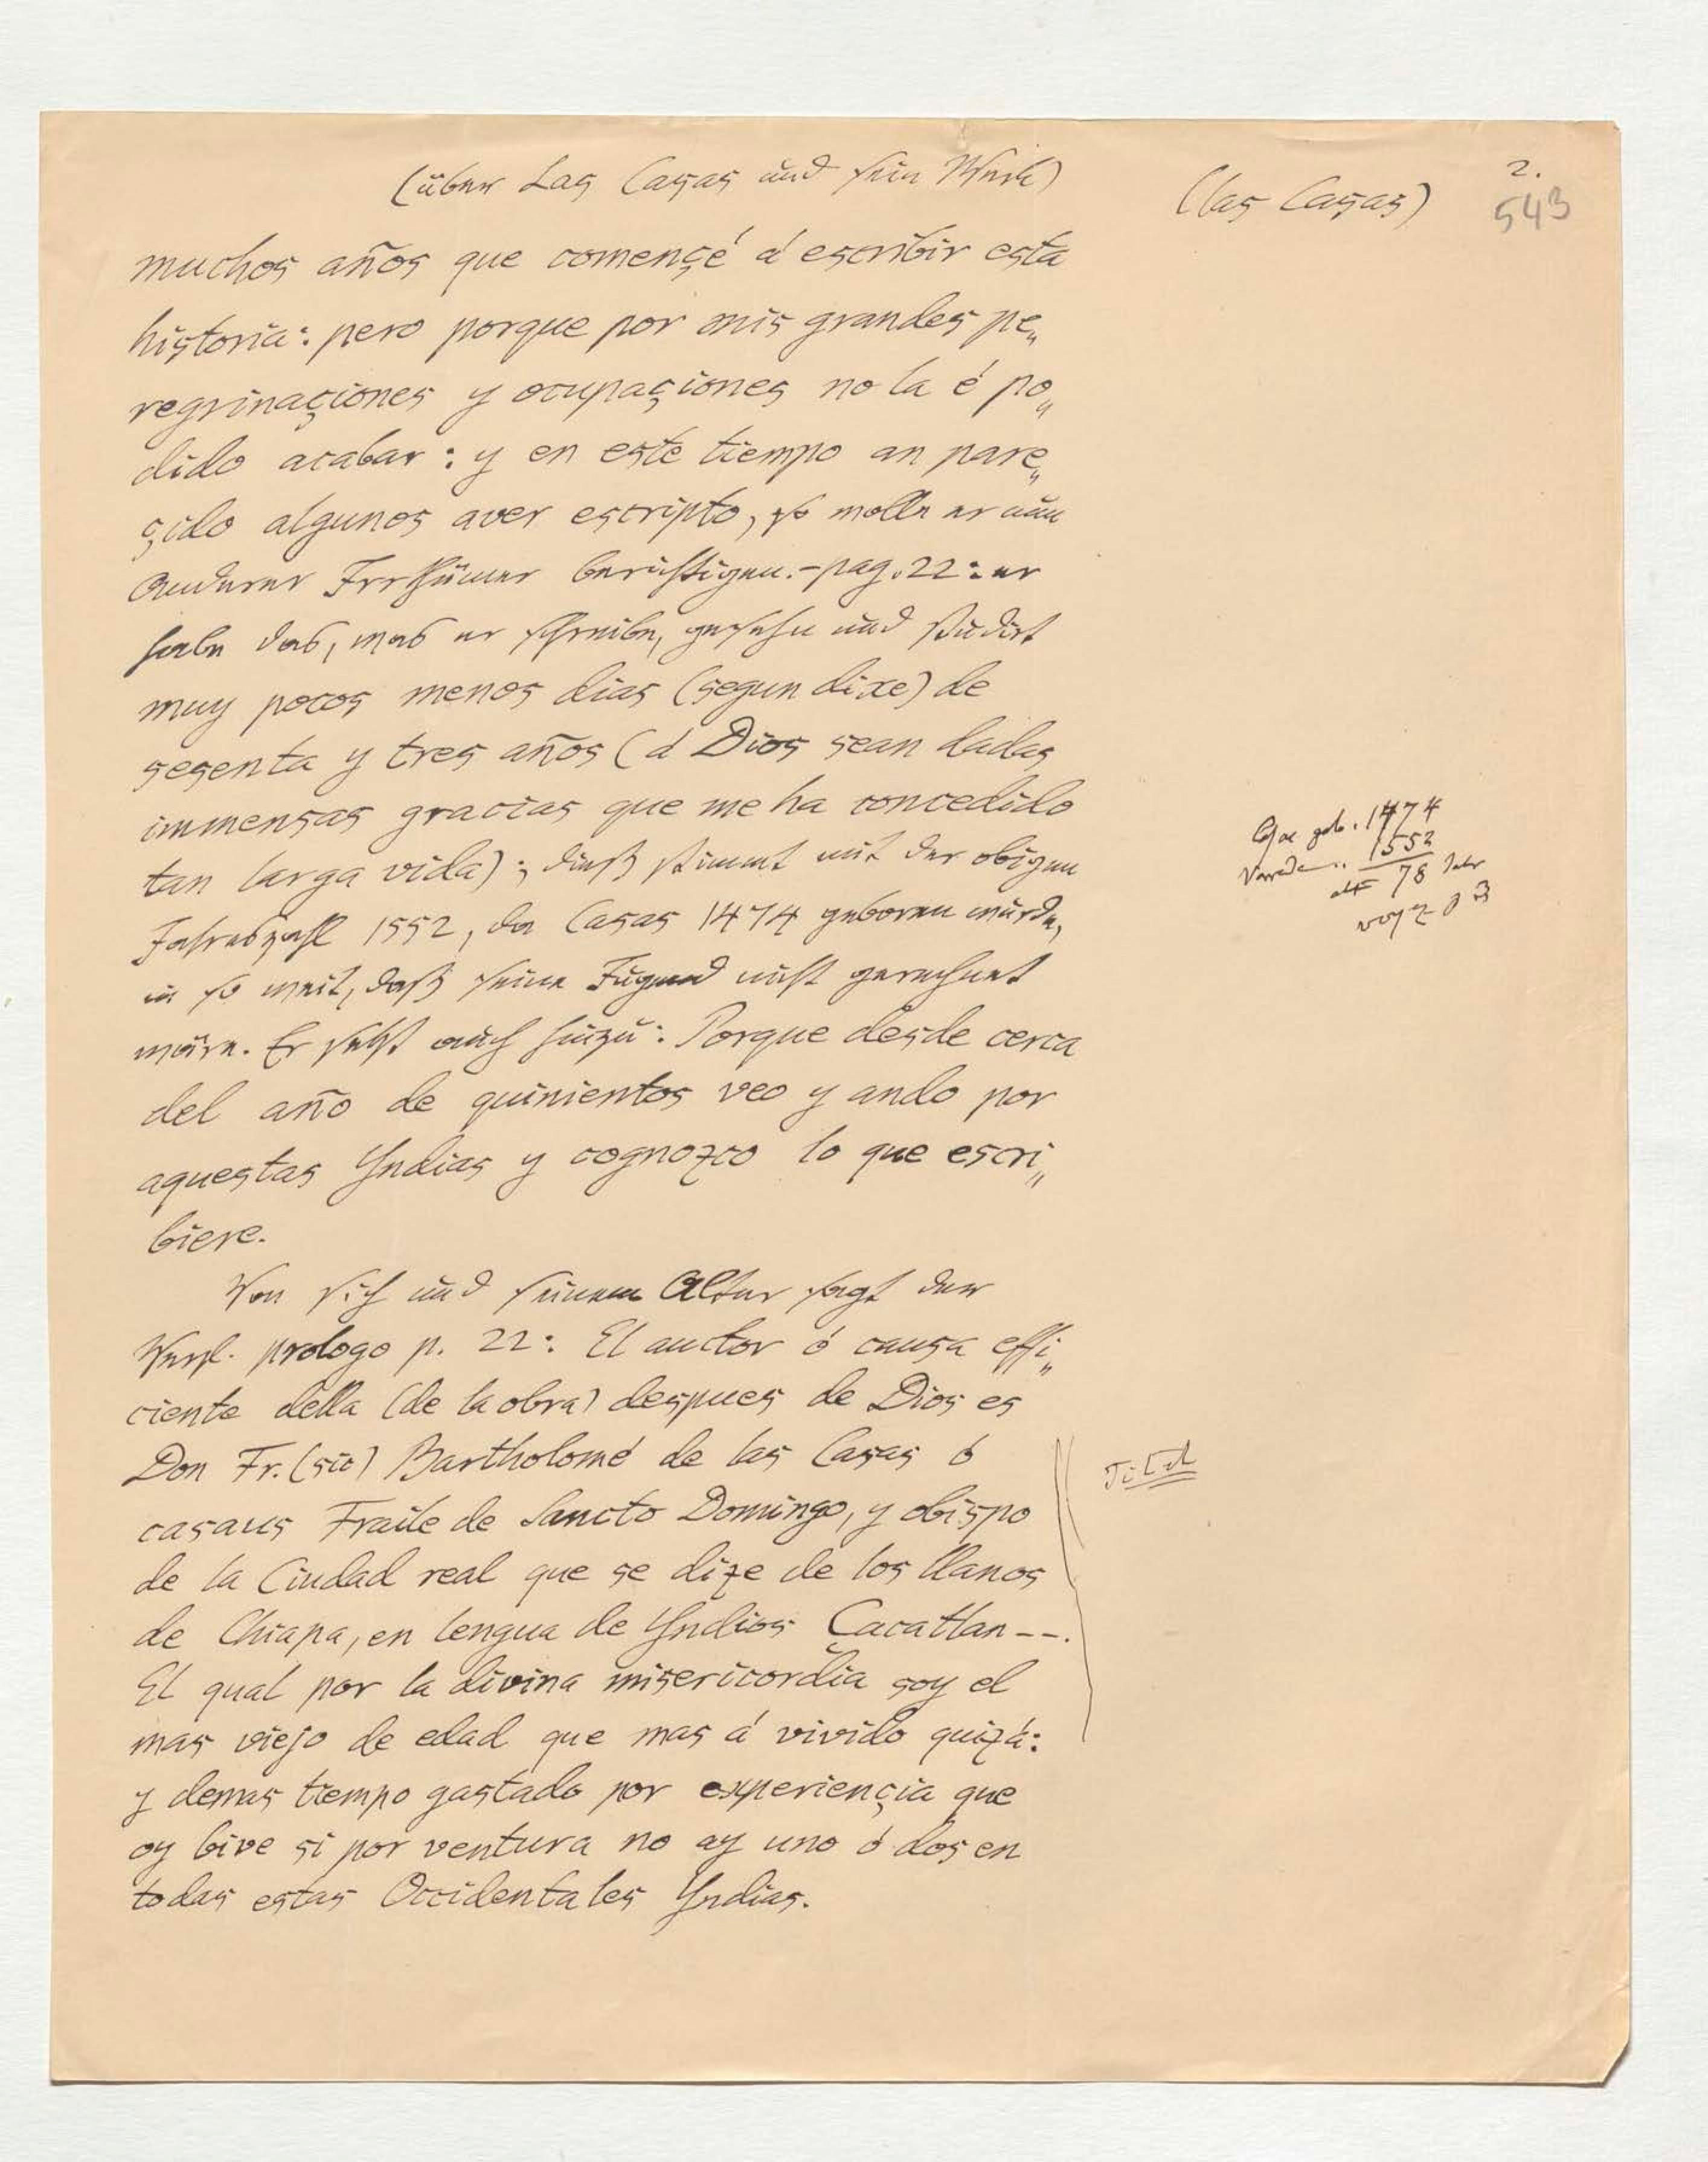 (über Las Casas und sein Werk)
(las Casas)
2.
543
muchos años que començé á escribir esta
historia: pero porque por mis grandes pe„
regrinaçiones y ocupaçiones no la é po„
dido acabar: y en este tiempo an pare„
çido algunos aver escripto, so wolle er nun
Anderer Irrthümer berichtigen. - pag. 22: er
habe das, was er schreibe, gesehn und studirt
muy pocos menos dias (segun dixe) de
sesenta y tres años (á Dios sean dadas
immensas gracias que me ha concedido
tan larga vida); dieß stimmt mit der obigen
Jahreszahl 1552, da Casas 1474 geboren wurde,
in so weit, daß seine Jugend nicht gerechnet
wäre. Er setzt auch hinzu: Porque desde cerca
del año de quinientos veo y ando por
aquestas Yndias y cognozco lo que escri„
biere.
geb. 1474
1552
alt 78 Jahr
Von sich und seinem Alter sagt der
Verf. prologo p. 22: El auctor ó causa effi„
ciente della (de la obra) despues de Dios es
Don Fr. (sic) Bartholomé de las Casas ó
casaus Fraile de Sancto Domingo, y obispo
de la Ciudad real que se dize de los llanos
de Chiapa, en lengua de Yndios Çacatlan --.
El qual por la divina misericordia soy el
mas viejo de edad que mas á vivido quizá:
y demas tiempo gastado por experiençia que
oy bive si por ventura no ay uno ó dos en
todas estas Occidentales Yndias.
Titel